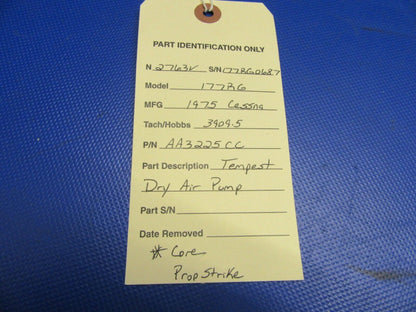 PART IDENTIFICATION ONLY
N 2763V S/N 177RG0687
Model 177RG
MFG 1975 Cessna
Tach/Hobbs 3909.5
P/N AA3225CC
Part Description Tempest
Dry Air Pump
Part S/N
Date Removed
* Core
Prop Strike